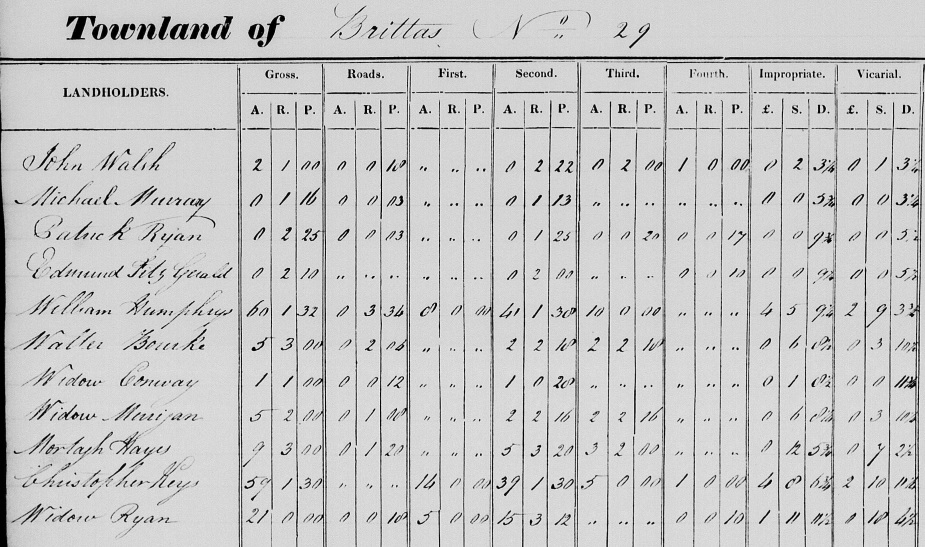 Townland of Brittas No 29
LANDHOLDERS. Gross. Roads. First. Second. Third. Fourth. Impropriate. Vicarial.
A. R. P. A. R. P. A. R. P. A. R. P. A. R. P. A. R. P. £. S. D. £. S. D.
John Walsh 2 1 00 0 0 18 " " " 0 2 22 0 2 00 1 0 00 0 2 3¼ 0 1 3¼
Michael Murray 0 1 16 0 0 03 " " " 0 1 13 " " " " " " 0 0 5¾ 0 0 3¼
Patrick Ryan 0 2 25 0 0 03 " " " 0 1 25 0 0 20 0 0 17 0 0 9¾ 0 0 5½
Edmund Fitz Gerald 0 2 10 " " " " " " 0 2 00 " " " 0 0 10 0 0 9½ 0 0 5½
William Humphrys 60 1 32 0 3 34 8 0 00 41 1 38 10 0 00 " " " 4 5 9¼ 2 9 3½
Walter Bourke 5 3 00 0 2 04 " " " 2 2 18 2 2 18 " " " 0 6 8½ 0 3 10½
Widow Conway 1 1 00 0 0 12 " " " 1 0 28 " " " " " " 0 1 8½ 0 0 11¾
Widow Merrigan 5 2 00 0 1 08 " " " 2 2 16 2 2 16 " " " 0 6 8¼ 0 3 10½
Mortagh Hayes 9 3 00 0 1 20 " " " 5 3 20 3 2 00 " " " 0 12 5¾ 0 7 2½
Christopher Keys 59 1 30 " " " 14 0 00 39 1 30 5 0 00 1 0 00 4 8 6¾ 2 10 11¾
Widow Ryan 21 0 00 0 0 18 5 0 00 15 3 12 " " " 0 0 10 1 11 11½ 0 18 4½